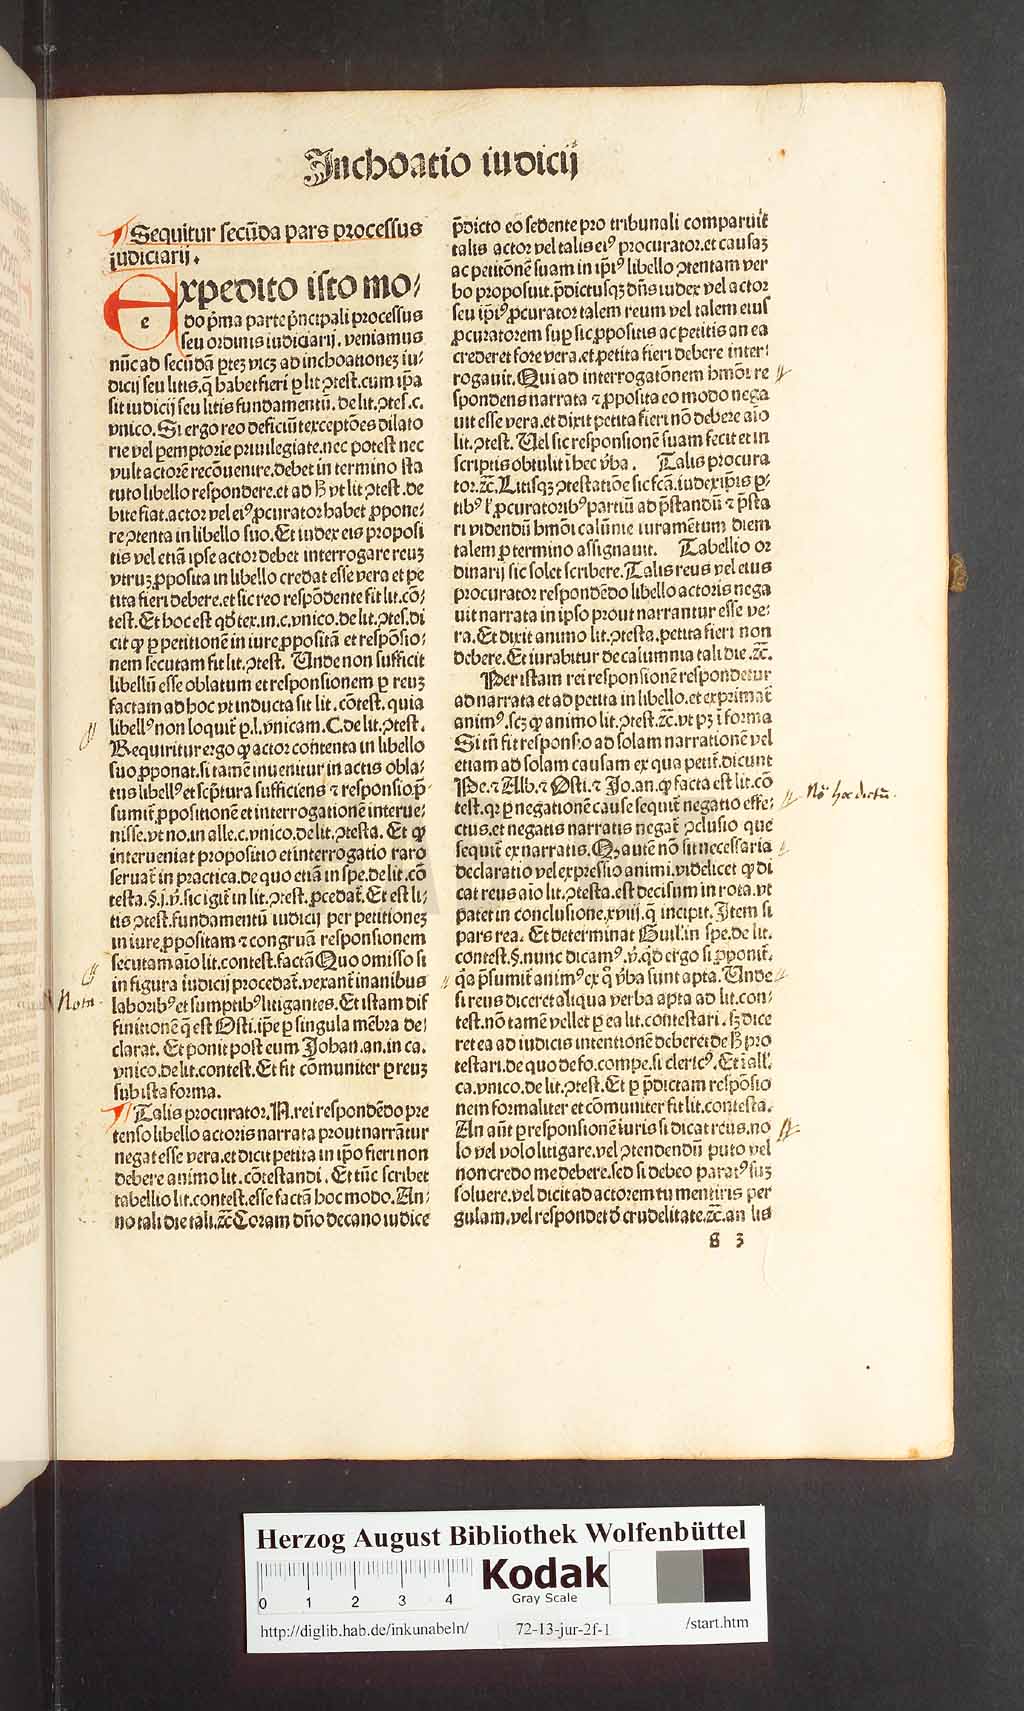 Inchoatio iudicij
Sequitur secūda pars processus
iudiciarij.
e
xpedito isto mo⸗
do p̄ma parte p̄ncipali processus
seu ordinis iudiciarij. veniamus
nūc ad secūdā ptez vicz ad inchoationez iu⸗
dicij seu litis. q̄ habet fieri ꝑ lit ꝯtest. cum ip̄a
sit iudicij seu litis fundamentū. de lit. ꝯtes. c.
vnico. Si ergo reo deficiūt exceptōes dilato
rie vel ꝑemptorie priuilegiate. nec potest nec
vult actorē recōuenire. debet in termino sta
tuto libello respondere. et ad h̄ vt lit ꝯtest. de
bite fiat. actor vel eiꝰ ꝓcurator habet ꝓpone⸗
re ꝯtenta in libello suo. Et iudex eis proposi
tis vel etiā ipse actor debet interrogare reuz
vtruz ꝓposita in libello credat esse vera et pe
tita fieri debere. et sic reo respōdente fit lit. cō⸗
test. Et hoc est qd̄ tex. in. c. vnico. de lit. ꝯtes. di
cit ꝙ ꝑ petitionē in iure ꝓpositā et respōsio⸗
nem secutam fit lit. ꝯtest. Unde non sufficit
libellū esse oblatum et responsionem ꝑ reuz
factam ad hoc vt inducta sit lit. cōtest. quia
libellꝰ non loquit̄ ꝑ. l. vnicam. C. de lit. ꝯtest.
Requiritur ergo ꝙ actor contenta in libello
suo ꝓponat. si tamē inuenitur in actis obla⸗
tus libellꝰ et scp̄tura sufficiens ⁊ responsio p̄⸗
sumit̄ ꝓpositionē et interrogationē interue⸗
nisse. vt no. in alle. c. vnico. de lit. ꝯtesta. Et ꝙ
interueniat propositio et interrogatio raro
seruat̄ in practica. de quo etiā in spe. de lit. cō
testa. §. j. v̄. sic igit̄ in lit. ꝯtest. ꝓcedat̄. Et est li⸗
tis ꝯtest. fundamentū iudicij per petitionez
in iure ꝓpositam ⁊ congruā responsionem
secutam aīo lit. contest. factā Quo omisso si
in figura iudicij procedat̄. vexant̄ inanibus
laboribꝰ et sumptibꝰ litigantes. Et istam dif
finitionē q̄ est Osti. ip̄e ꝑ singula mēbra de⸗
clarat. Et ponit post eum Johan. an. in ca.
vnico. de lit. contest. Et fit cōmuniter ꝑ reuz
sub ista forma.
Talis procurator. N. rei respondēdo pre
tenso libello actoris narrata prout narrātur
negat esse vera. et dicit petita in ip̄o fieri non
debere animo lit. cōtestandi. Et tūc scribet
tabellio lit. contest. esse factā hoc modo. An⸗
no tali die tali. ⁊c̄ Coram dn̄o decano iudice
p̄dicto eo sedente pro tribunali comparuit
talis actor vel talis eiꝰ procurator. et causaz
ac petitōnē suam in ip̄iꝰ libello ꝯtentam ver
bo proposuit. p̄dictusqz dn̄s iudex vel actor
seu ip̄iꝰ ꝓcurator talem reum vel talem eius
ꝓcuratorem suꝑ sic ꝓpositis ac petitis an ea
crederet fore vera. et petita fieri debere inter⸗
rogauit. Qui ad interrogatōnem hmōi re
spondens narrata ⁊ ꝓposita eo modo nega
uit esse vera. et dixit petita fieri nō debere aīo
lit. ꝯtest. Vel sic responsionē suam fecit et in
scriptis obtulit ī hec v̄ba. Talis procura
tor. ⁊c̄. Litisqz ꝯtestatiōe sic fcā. iudex ip̄is ꝑ⸗
tibꝰ l̄ ꝓcuratoribꝰ partiū ad p̄standū ⁊ p̄sta
ri videndū hmōi calūnie iuramētum diem
talem ꝓ termino assignauit. Tabellio or
dinarij sic solet scribere. Talis reus vel eius
procurator respondēdo libello actoris nega
uit narrata in ipso prout narrantur esse ve⸗
ra. Et dixit animo lit. ꝯtesta. petita fieri non
debere. Et iurabitur de calumnia tali die. ⁊c̄.
Per istam rei responsionē respondetur
ad narrata et ad petita in libello. et exprimat̄
animꝰ. scz ꝙ animo lit. ꝯtest. ⁊c̄. vt pz ī forma
Si tn̄ fit responsio ad solam narrationē vel
etiam ad solam causam ex qua petit̄. dicunt
Pe. ⁊ Alb. ⁊ Osti. ⁊ Jo. an. ꝙ facta est lit. cō
test. qꝛ ꝑ negationē cause sequit̄ negatio effe⸗
ctus. et negatis narratis negat̄ ꝯclusio que
sequit̄ ex narratis. Qz autē nō sit necessaria
declaratio vel expressio animi. videlicet ꝙ di
cat reus aīo lit. ꝯtesta. est decisum in rota. vt
patet in conclusione. xviij. q̄ incipit. Item si
pars rea. Et determinat Guil. in spe. de lit.
contest. §. nunc dicamꝰ. v̄. qd̄ ergo si ꝓponit̄.
qa p̄sumit̄ animꝰ ex q̄ v̄ba sunt apta. Unde
si reus diceret aliqua verba apta ad lit. con⸗
test. nō tamē vellet ꝑ ea lit. contestari. sz dice
ret ea ad iudicis intentionē deberet de h̄ pro
testari. de quo de fo. compe. si clericꝰ. Et ī all̄.
ca. vnico. de lit. ꝯtest. Et ꝑ p̄dictam respōsio
nem formaliter et cōmuniter fit lit. contesta.
An aūt ꝑ responsionē iuris si dicat reus. no
lo vel volo litigare. vel ꝯtendendū puto vel
non credo me debere. sed si debeo paratꝰ suz
soluere. vel dicit ad actorem tu mentiris per
gulam. vel respondet d̄ crudelitate. ⁊c̄. an lis
g 3
Nota.
Nō hoc dictū.
Herzog August Bibliothek Wolfenbüttel
0 1 2 3 4
Kodak
Gray Scale
http://diglib.hab.de/inkunabeln/ 72-13-jur-2f-1 /start.htm